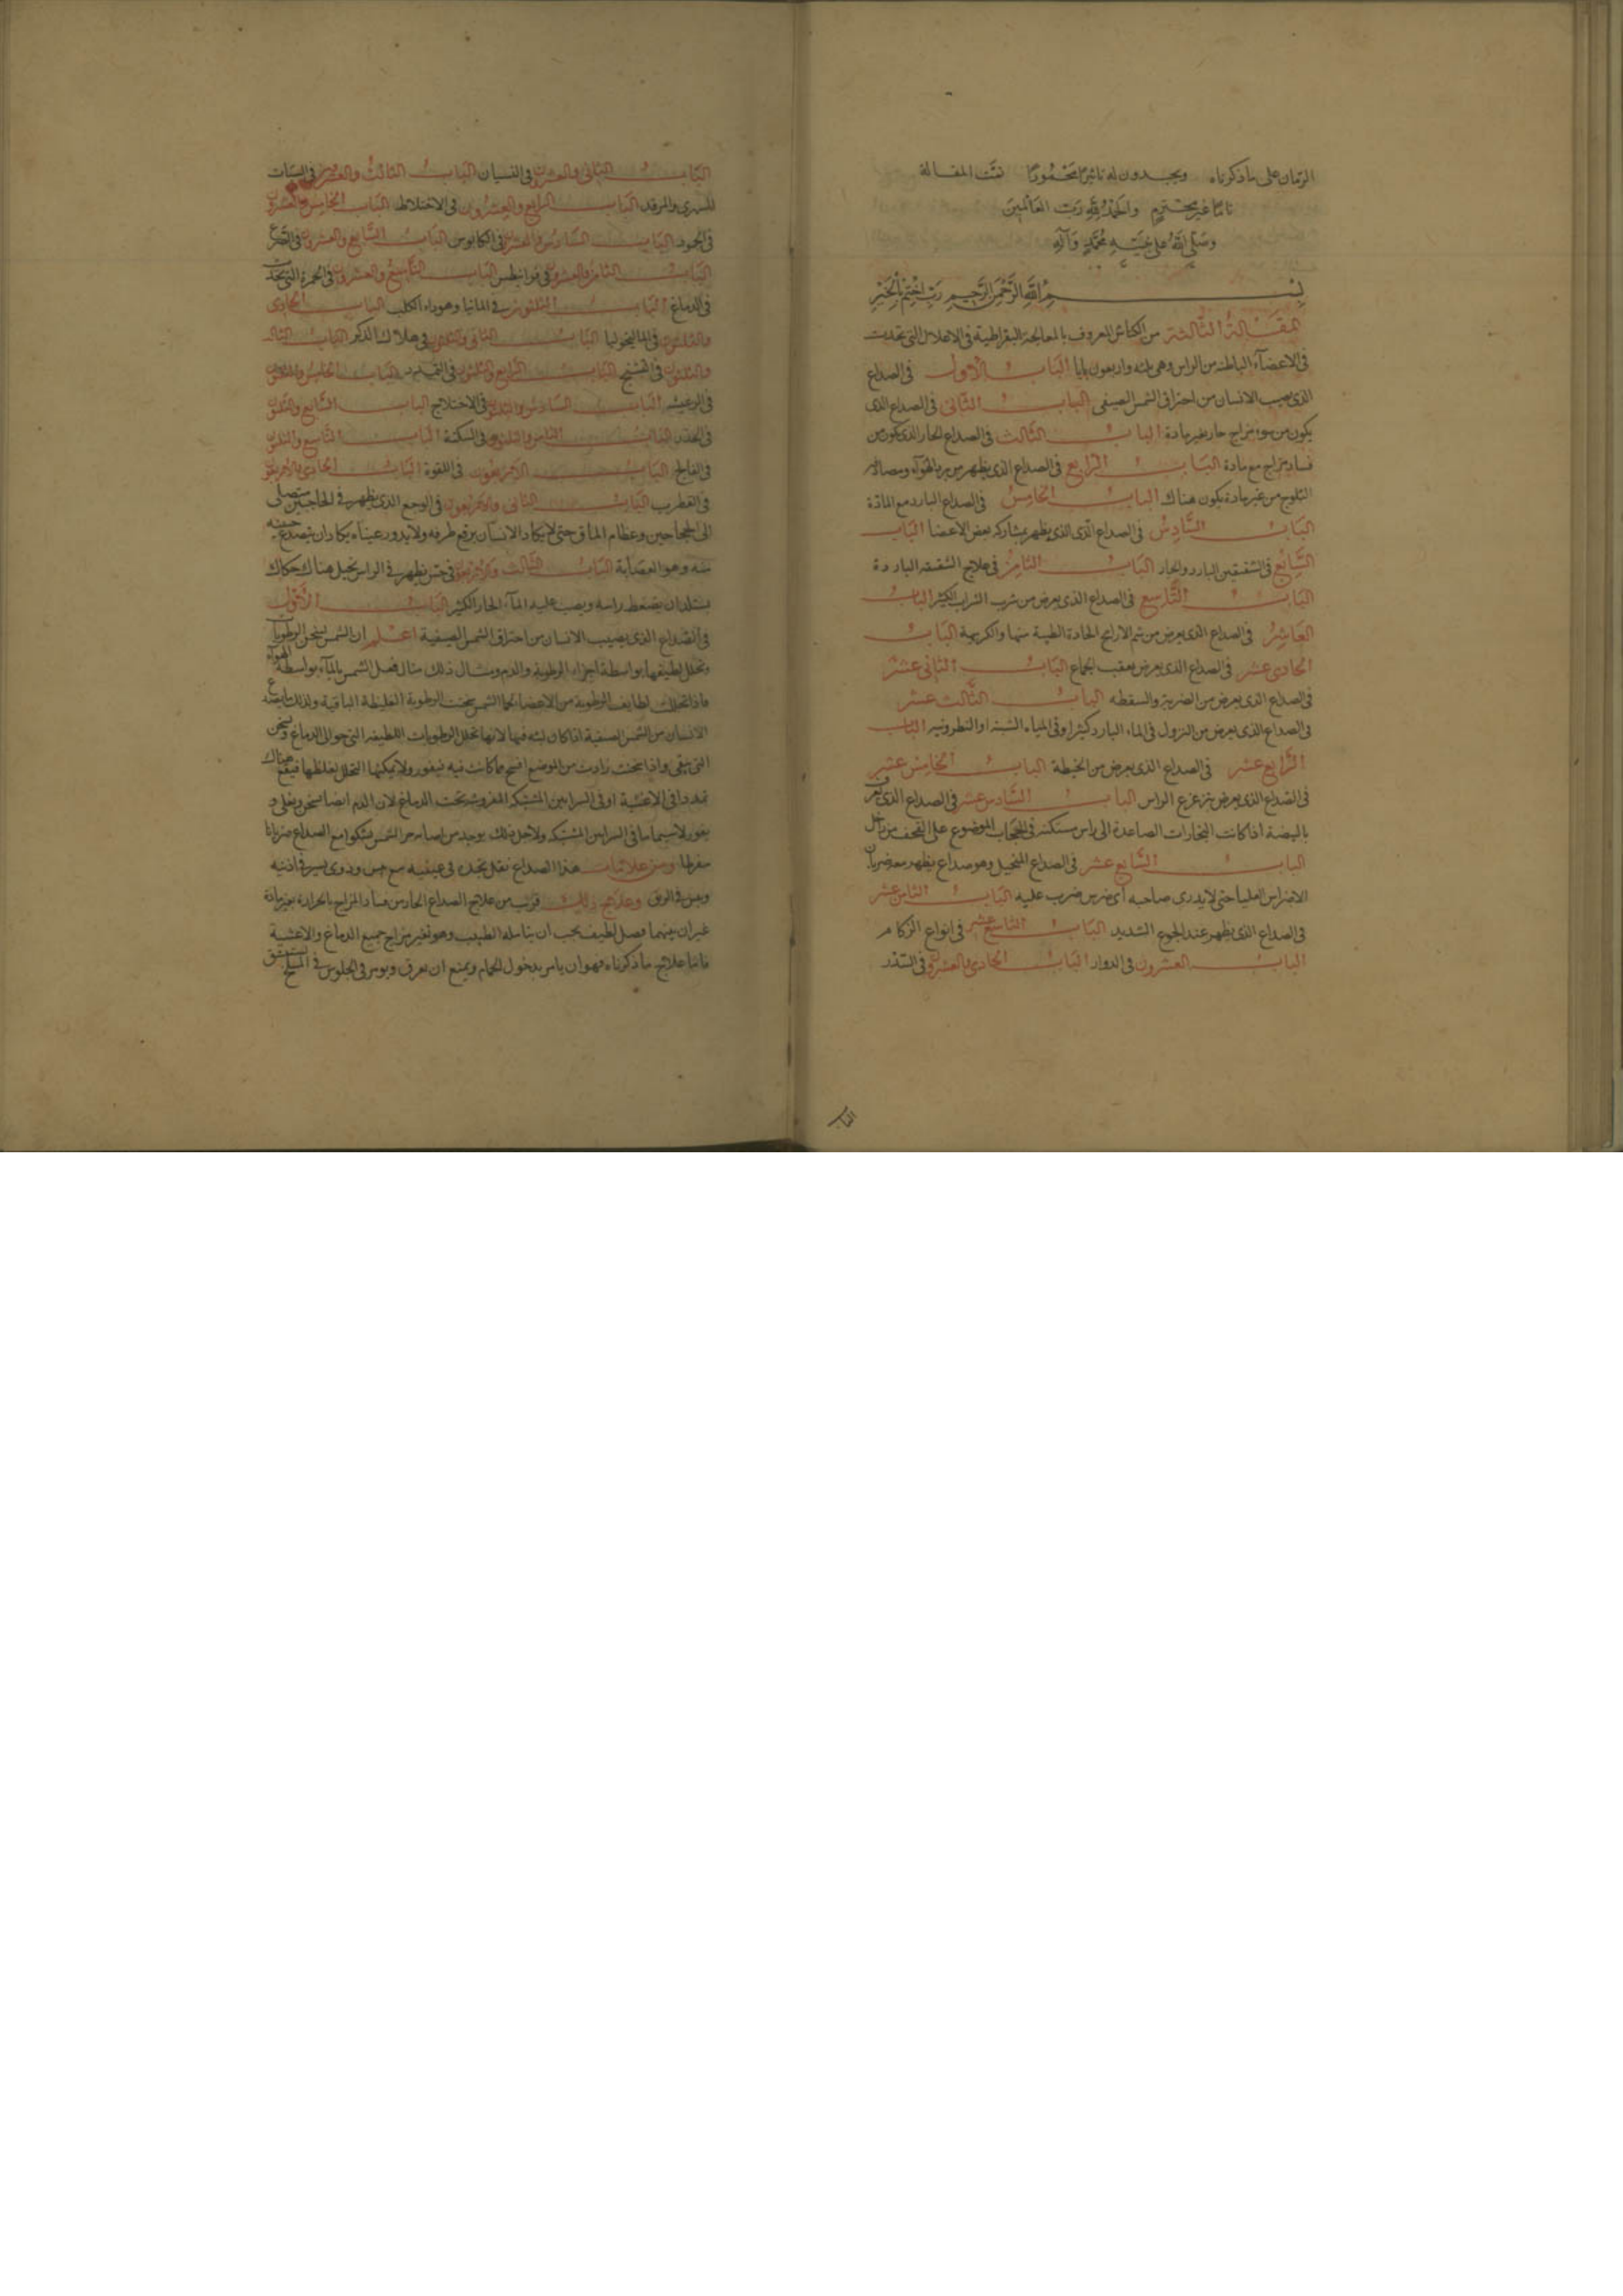 الزمان على ما ذكرناه ويجدون له تاثيرا محمودا تمت المقالة
تاما غير محترم والحمد لله رب العالمين
وصلى الله على نبيه محمد وآله
بسم الله الرحمن الرحيم رب اختم بالخير
المقالة الثالثة من الكناش المعروف بالمعالجة البقراطية في الاعلال التي تحدث
في الاعضاء الباطنة من الراس وهي ثلثه واربعون بابا الباب الاول في الصداع
الذي يصيب الانسان من احتراق الشمس الصيفي الباب الثاني في الصداع الذي
يكون من سوء مزاج حار بغير مادة الباب الثالث في الصداع الحار الذي يكون من
فساد مزاج مع مادة الباب الرابع في الصداع الذي يظهر من برد الهواء
الثلوج من غير مادة يكون هناك الباب الخامس في الصداع البارد مع المادة
الباب السادس في الصداع الذي الذي يظهر بمشاركه بعض الاعضا الباب
السابع في الشقيقتين البارد والحار الباب الثامن في علاج الشقيقه الباردة
الباب التاسع في الصداع الذي يعرض من شرب الشراب الكثير الباب
العاشر في الصداع الذي يعرض من شم الارايح الحادة الطيبة منها والكريهة الباب
الحادي عشر في الصداع الذي يعرض بعقب الجماع الباب الثاني عشر
في الصداع الذي يعرض من الضربة والسقطه الباب الثالث عشر
في الصداع الذي يعرض من النزول في الماء البارد كثيرا وفي المياه الشبية او النطرونيه الباب
الرابع عشر في الصداع الذي يعرض من الخبطة الباب الخامس عشر
في الصداع الذي يعرض من تزعزع الراس الباب السادس عشر في الصداع الذي يعرف
بالبيضة اذا كانت البخارات الصاعدة الى الراس مستكنة في الحجاب الموضوع على القحف من داخل
الباب السابع عشر في الصداع المتخيل وهو صداع يظهر معه ضربان
الاضراس العليا حتى لا يدري صاحبه اي ضرس ضرب عليه الباب الثامن عشر
في الصداع الذي يظهر عند الجوع الشديد الباب التاسع عشر في انواع الزكام
الباب العشرون في الدوار الباب الحادي والعشرون في السدر
الباب الثاني والعشرون في النسيان الباب الثالث والعشرون في السبات
السهري والمرقد الباب الرابع والعشرون في الاختلاط الباب الخامس والعشرون
في الجمود الباب السادس والعشرون في الكابوس الباب السابع والعشرون في الصرع
الباب الثامن والعشرون في قرانيطس الباب التاسع والعشرون في الحمرة التي تحدث
في الدماغ الباب الثلثون في المانيا وهو داء الكلب الباب الحادي
والثلثون في الماليخوليا الباب الثاني والثلثون في هلاك الذكر الباب الثالث
والثلثون في التشنج الباب الرابع والثلثون في التمدد الباب الخامس والثلثون
في الرعشه الباب السادس والثلثون في الاختلاج الباب السابع والثلثون
في الخدر الباب الثامن والثلثون في السكتة الباب التاسع والثلثون
في الفالج الباب الاربعون في اللقوة الباب الحادي والاربعون
في القطرب الباب الثاني والاربعون في الوجع الذي يظهر في الحاجبين متصل
الى الحجاجين وعظام المآق حتى لا يكاد الانسان يرفع طرفه ولا يدور عيناه يكاد ان يتصدع جبينه
منه وهو العصابة الباب الثالث والاربعون في حس يظهر في الراس تخيل هناك حكاك
يستلذ ان يضغط راسه ويصب عليه الماء الحار الكثير الباب الاول
في الصداع الذي يصيب الانسان من احتراق الشمس الصيفية اعلم ان الشمس تسخن الرطوبات
وتحلل لطيفها بواسطة اجزاء الرطوبة والدم ومثال ذلك مثال فعل الشمس بالماء بواسطة الهواء
فاذا تحللت لطايف الرطوبة من الاعضاء بحما الشمس سخنت الرطوبة الغليظة الباقية ولذلك ما يمنع
الانسان من الشمس الصيفية اذا كان لبثه فيها لانها تحلل الرطوبات اللطيفه التي حوالى الدماغ وتسخن
التي تبقى واذا سخنت زادت من الموضع افسح مما كانت فيه فيفور ولا يمكنها التحلل لغلظها فيقع هناك
تمددا في الاغشية او في الشرايين المشتبكه المفروشة تحت الدماغ لان الدم ايضا يسخن ويغلي و
يفور لا سيما ما في الشرايين المشتبكه ولاجل ذلك يوجد من اصابه حر الشمس يشكوا مع الصداع ضربانا
مفرطا ومن علامات هذا الصداع ثقل يجده في عينيه مع ودوي يسير في اذنيه
ويبس في الريق وعلاج ذلك قريب من علاج الصداع الحار من فساد المزاج بالحرارة بغير مادة
غير ان بينهما فصل لطيف يجب ان يتامله الطبيب وهو تغير مزاج جميع الدماغ والاغشية
فاما علاج ما ذكرناه فهو ان يامر بدخول الحمام ويمنع ان يعرق ويومر في الجلوس في المسلخ يستنشق